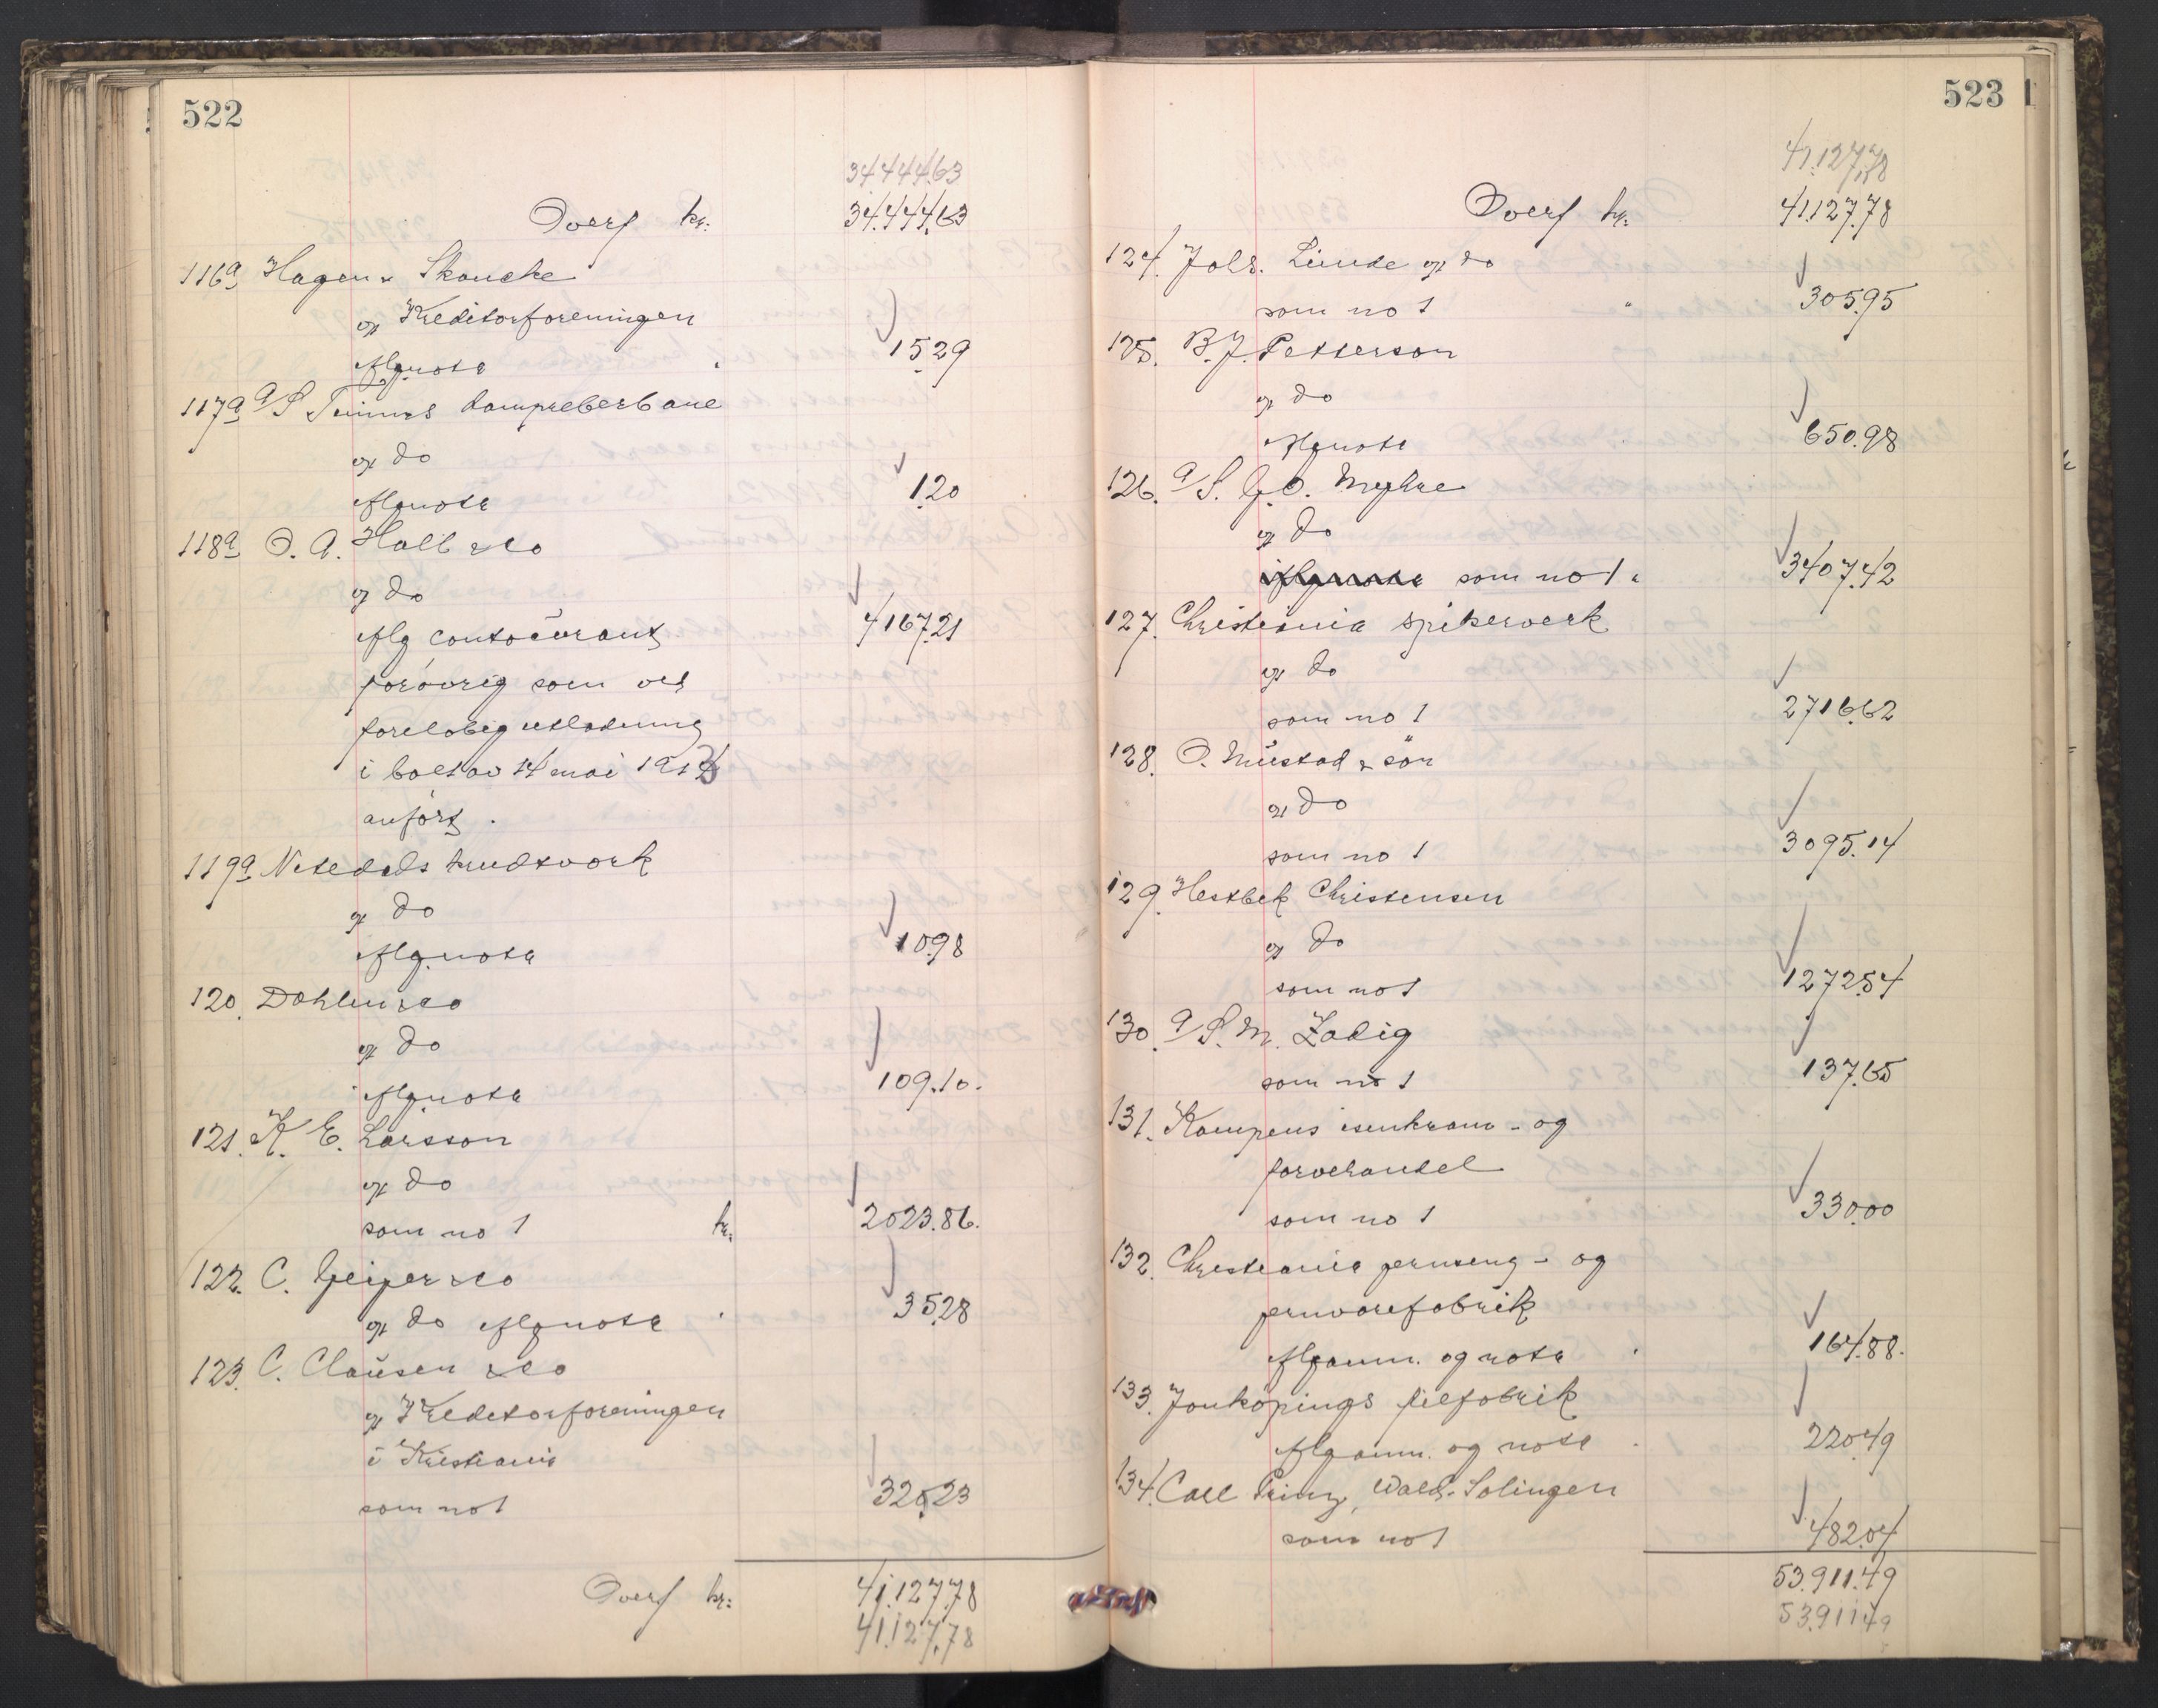 522
34.444.63
Overf kr. 34.444.63
116a Hagen & Skancke
ved Kreditorforeningen
iflg nota " 15.29
117a A/S Tinnes Dampveberbane
ved do
iflg nota 1.20
118a O. A. Holl & Co
ved do
iflg contocurant 4167.21
forövrig som ved
forelobig utlodning
i boet av 14 mai 1913
anfört.
119a Nitedals krudtverk
ved do
iflg nota 10.98
120. Dahlen & Co
ved do
iflg nota 109.10.
121. K. E. Larsson
ved do
som no 1 kr. 2023.86.
122. C. Geijer & Co
ved do iflg nota " 35.28
123. C. Clausen & Co
ved Kreditorforeningen
i Kristiania
som no 1 320.23
Overf kr. 41.127.78
41.127.78
523
41.127.78
Overf kr. 41.127.78
124. Johs. Lunde ved do
som no 1 " 305.95
125. B. J. Petterson
ved do
iflg nota 650.98
126. A/S. G. O. Myhre
ved do
iflg nota som no 1 " 3407.42
127. Christiania spikerverk
ved do
som no 1 2716.62
128. O. Mustad & sön
ved do
som no 1 3095.14
129. Hestbek Christensen
ved do
som no 1 1272.54
130. A/S. M. Zadig
som no 1 137.65
131. Kampens isenkram- og
farvehandel
som no 1 330.00
132. Christiania jernseng- og
jernvarefabrik
iflg anm. og nota " 164.88.
133. Jonköpings filfabrik
iflg anm. og nota " 220.49
134. Carl Prinz, Wald-Solingen
som no 1 482.04
53.911.49
53.911.49